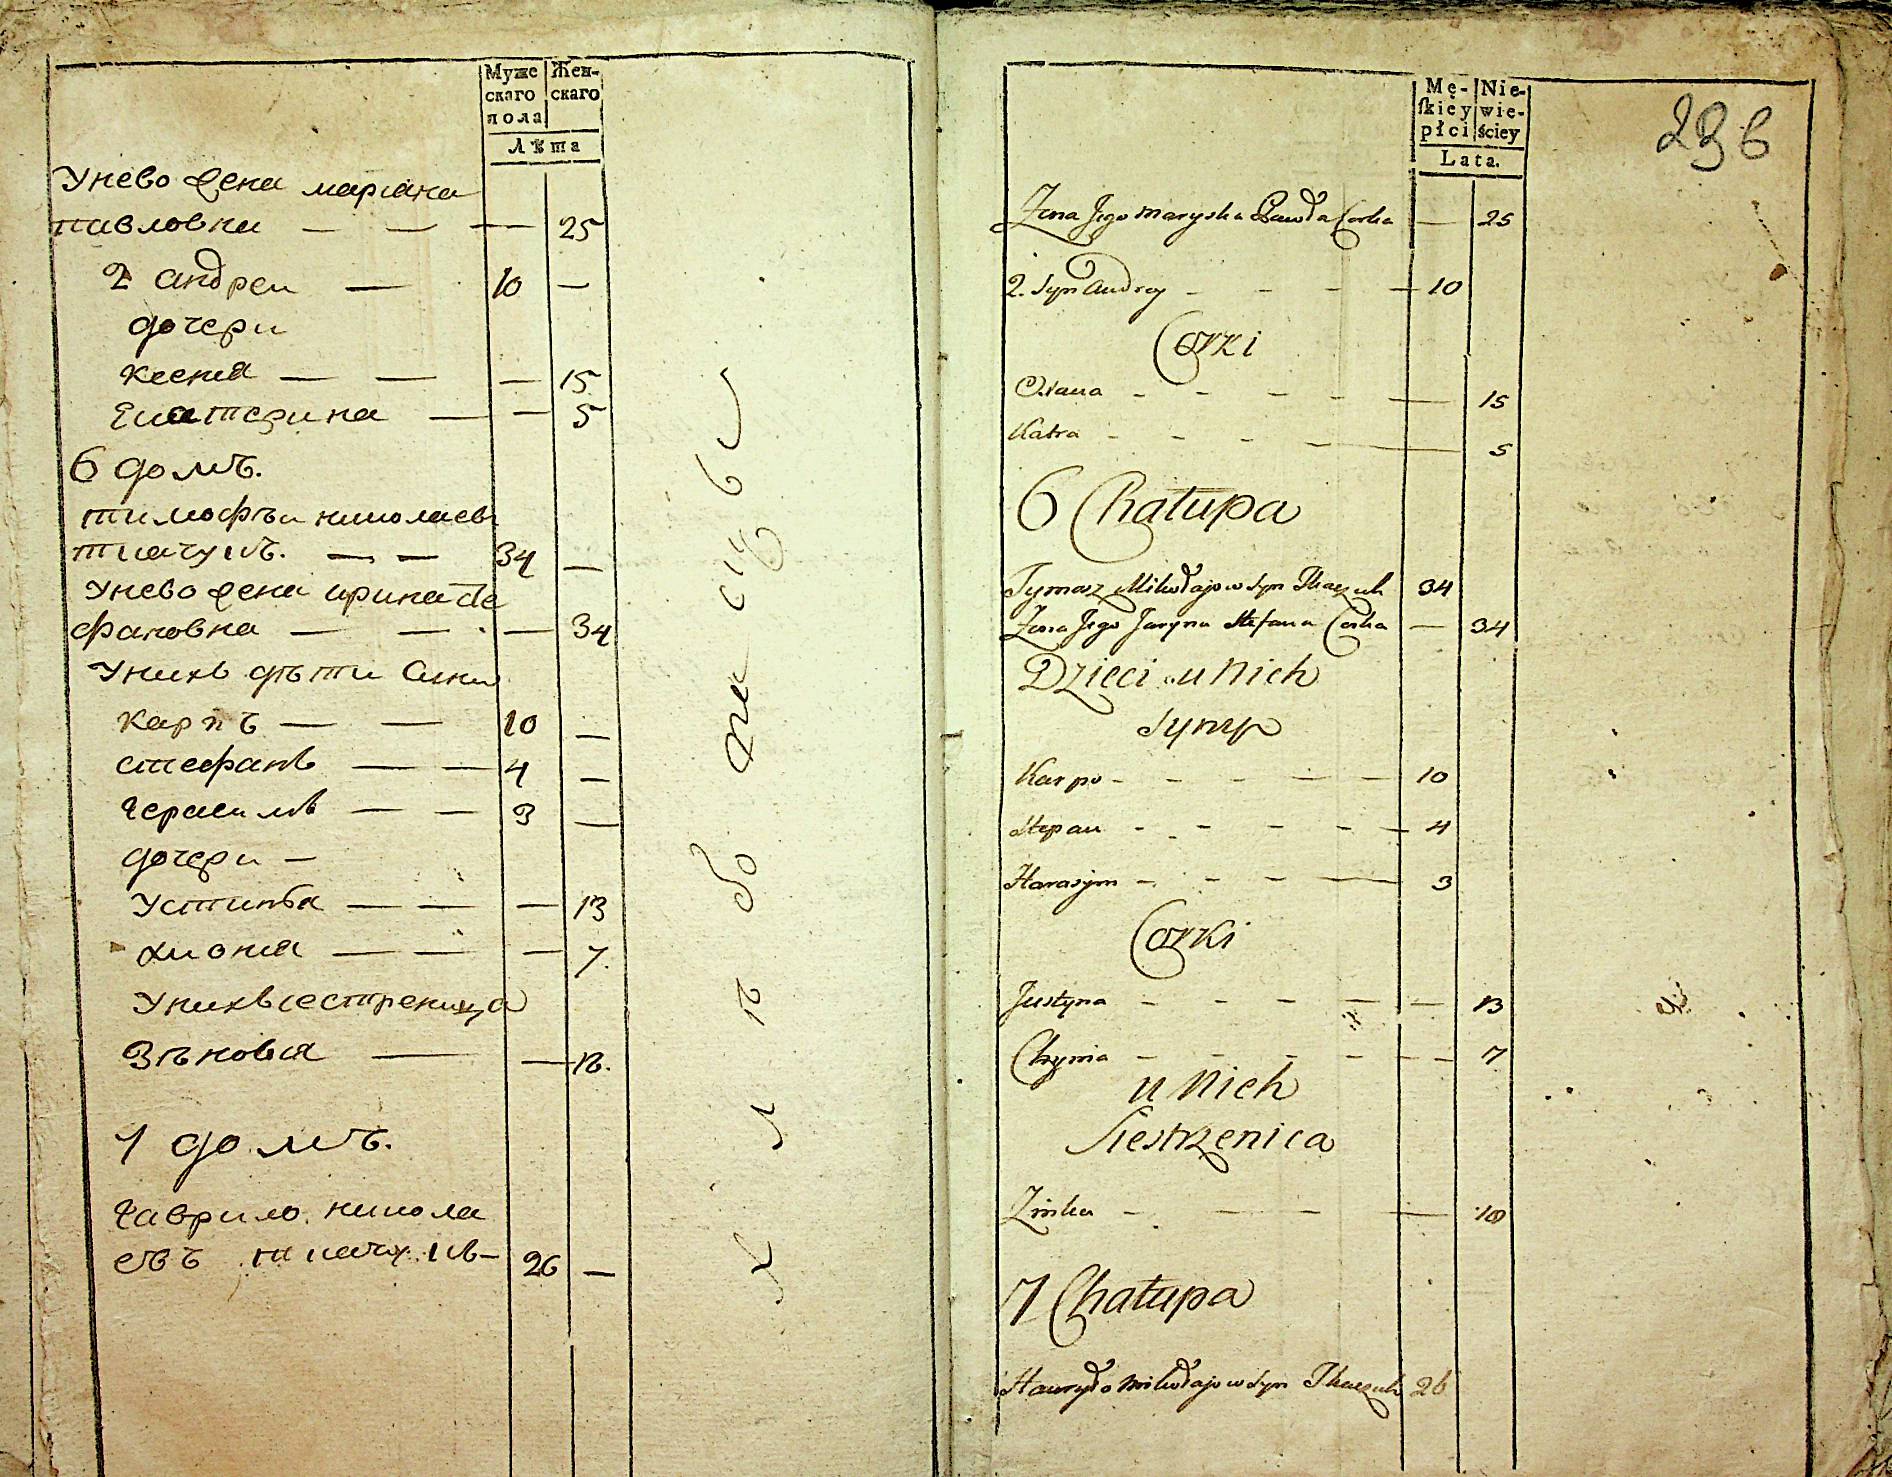 Муже
скаго
пола
Жен-
скаго
Лѣта
Унево жена мариана
павловна — — — 25
2 андреи — 10 —
дочери
ксения — — — 15
Екатерина — — 5
6 домъ.
тимофѣи николаевъ
ткачукъ. — — 34 —
Унево жена ирина сте
фановна — — — 34
Унихъ дѣти сини
карпъ — — 10 —
стефанъ — — 4 —
герасимъ — — 3 —
дочери —
Устинья — — — 13
хиония — — — 7.
Унихъ сестреница
Зѣновия — — 18.
7 домъ.
гаврило никола
евъ ткачукъ — 26 —
Mę-
skiey
płci
Nie-
wie-
ściey
Lata.
236
Żona Jego Maryska Pawła Corka — 25
2. Syn Andrey - - - — 10
Corki
Oxana - - - - — 15
Katra - - - - — 5
6 Chałupa
Tymosz Mikołajow Syn Tkaczuk 34
Żona Jego Jaryna Stefana Corka — 34
Dzieci u Nich
Syny
Karpo - - - - - 10
Stepan - - - - - 4
Harasym - - - — 3
Corki
Justyna - - - - - 13
Chymia - - - - - - 7
u Nich
Siestrzenica
Zinka - - - - — 18
7 Chałupa
Hawryło Mikołajow Syn Tkaczuk 26